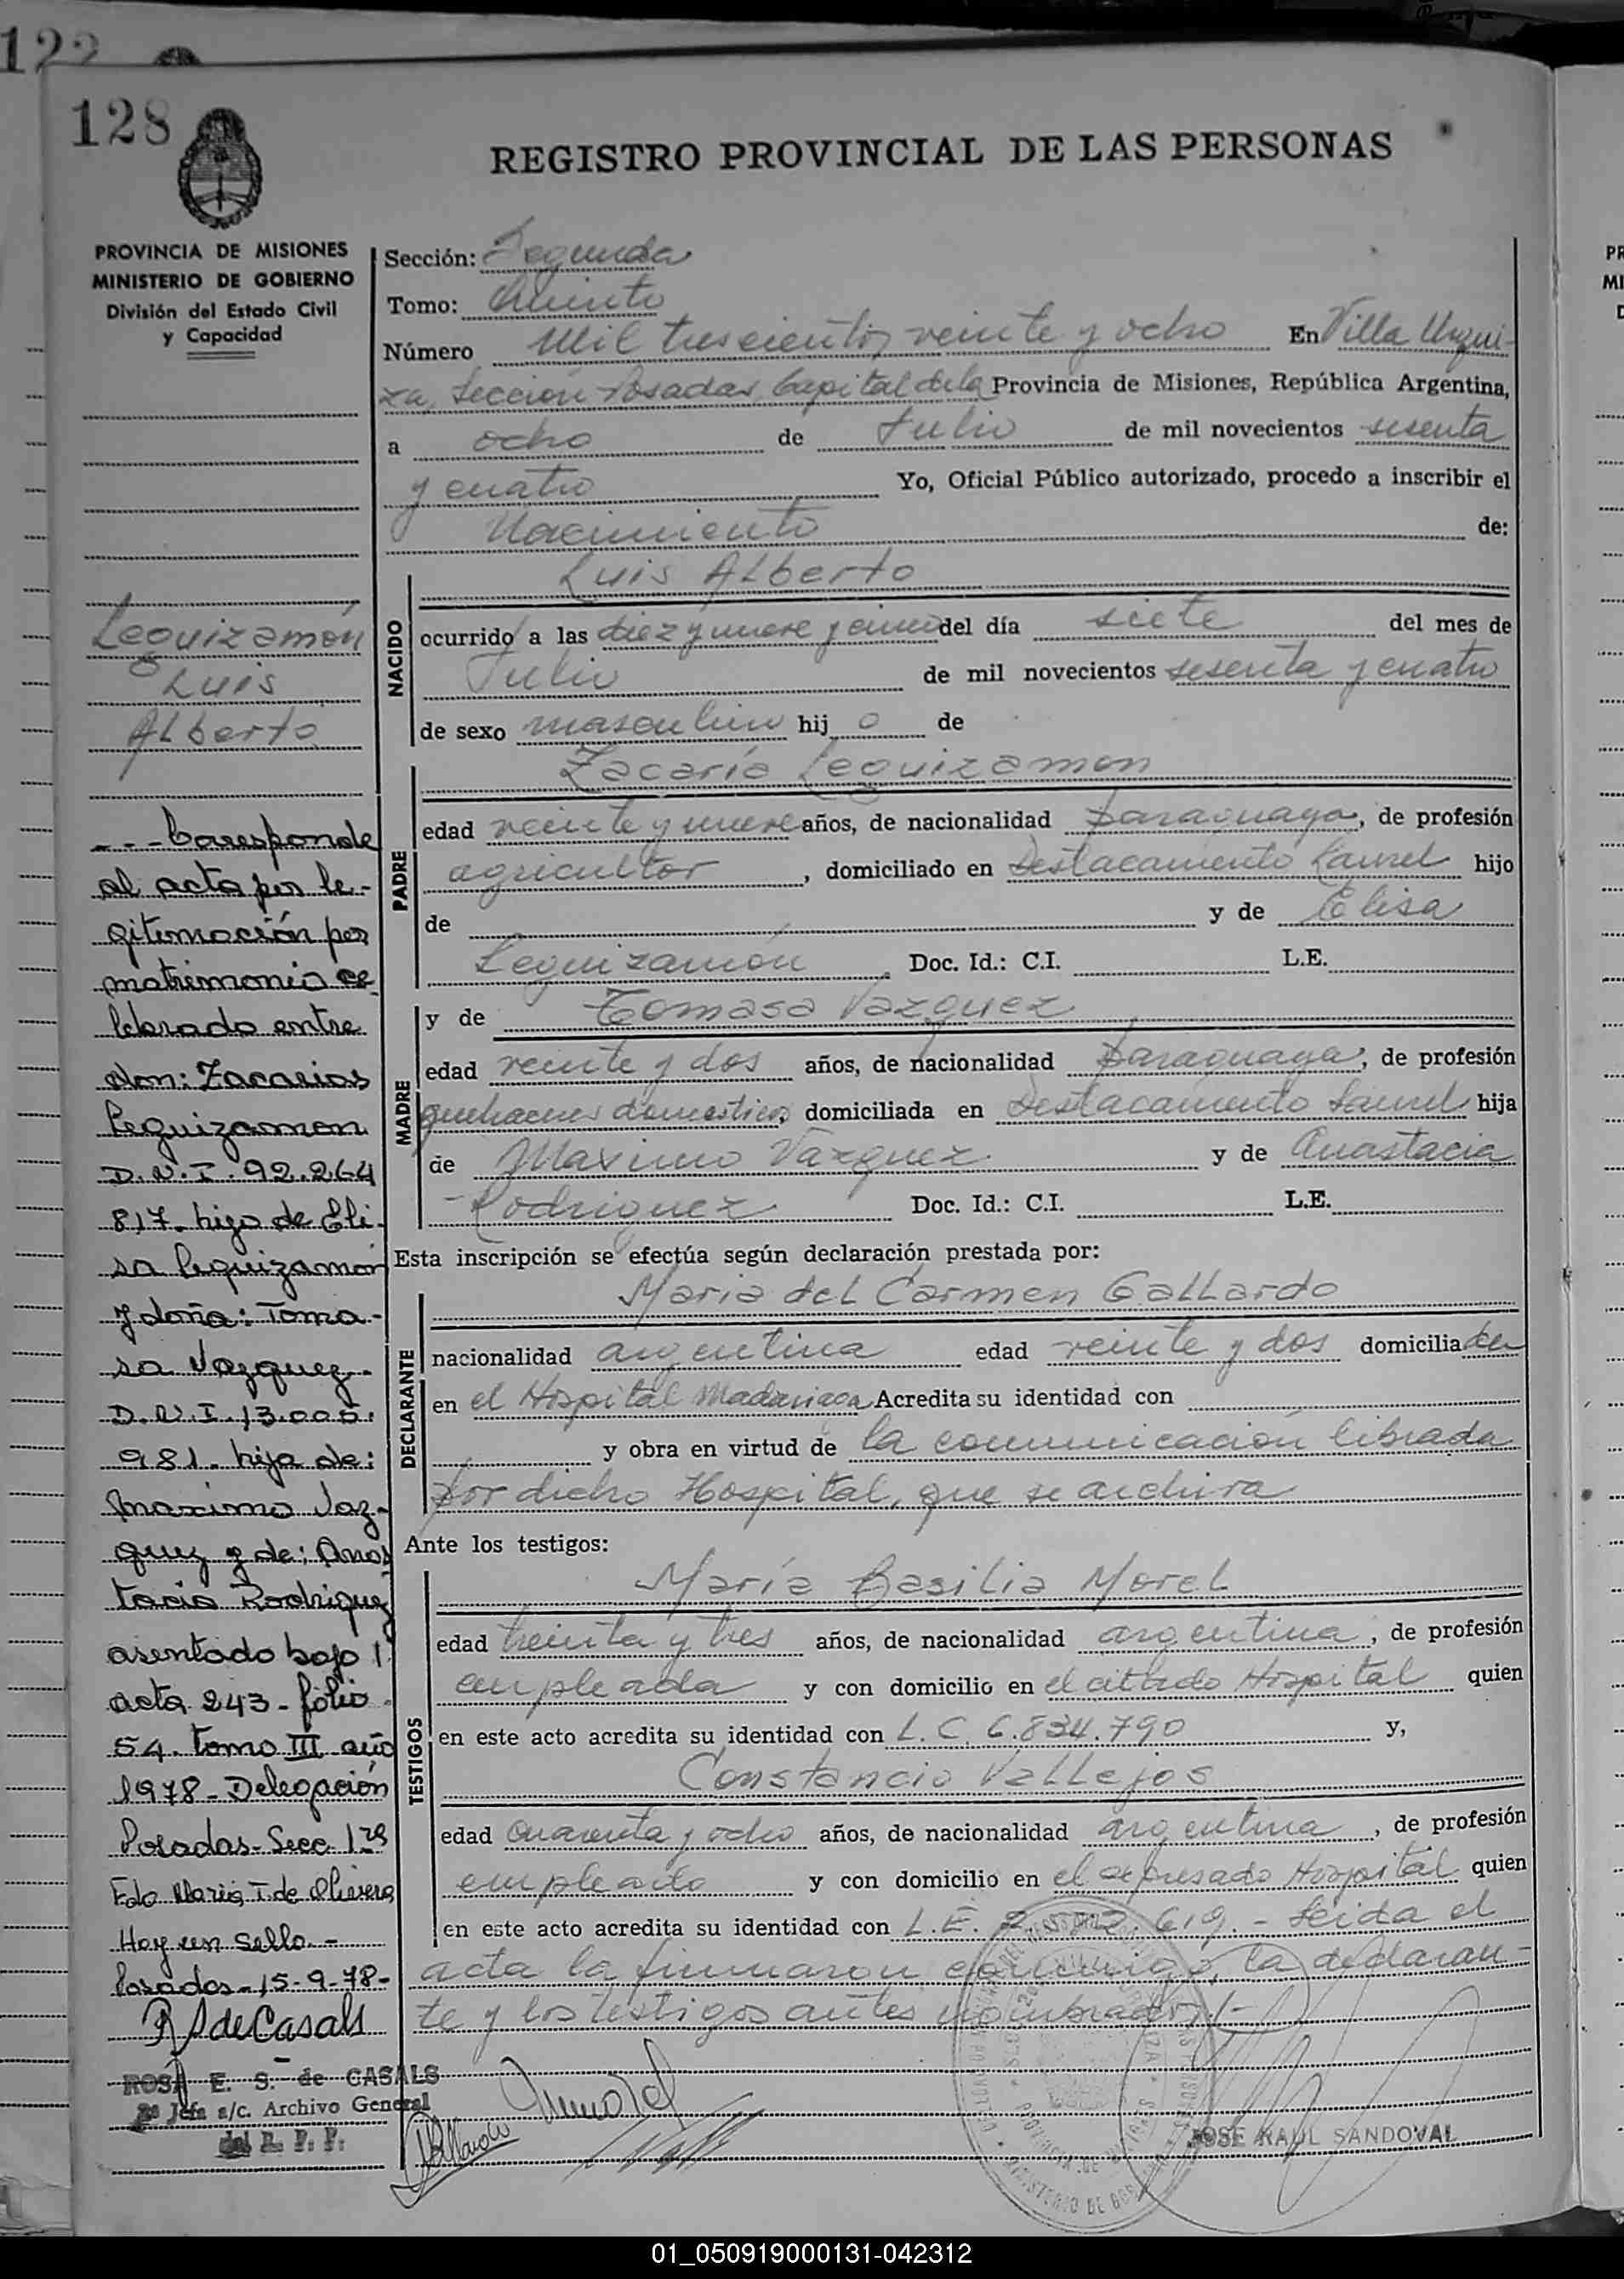 122
128
REGISTRO PROVINCIAL DE LAS PERSONAS
PROVINCIA DE MISIONES
MINISTERIO DE GOBIERNO
División del Estado Civil
y Capacidad
Leguizamón
Luis
Alberto
- - - Corresponde
al acta por le-
gitimación por
matrimonio ce
lebrado entre
don: Zacarias
Leguizamon
D.N.I. 92.264
817. hijo de Eli-
sa Leguizamón
y doña: Toma-
sa Vazquez-
D.N.I. 13.005.
981. hija de:
Maximo Vaz-
quez y de: Anas
tacia Rodriguez
asentado bajo
acta 243 - folio
54. tomo III año
1978 - Delegación
Posadas - Secc. 1ra
Fdo Maria T. de
Hay un sello. -
Posadas - 15-9-78-
ROSA E. S. de CASALS
2ª Jefa a/c. Archivo General
del R. P. P.
Sección: Segunda
Tomo: Quinto
Número Mil trescientos veinte y ocho En Villa Urqui-
za, Sección Posadas, Capital de la Provincia de Misiones, República Argentina,
a ocho de Julio de mil novecientos sesenta
y cuatro Yo, Oficial Público autorizado, procedo a inscribir el
Nacimiento de:
NACIDO
Luis Alberto
ocurrido a las diez y nueve y cinco del día siete del mes de
Julio de mil novecientos sesenta y cuatro
de sexo masculino hijo de
PADRE
Zacaría Leguizamon
edad veinte y nueve años, de nacionalidad paraguaya, de profesión
agricultor, domiciliado en Destacamento Laurel hijo
de y de Elisa
Leguizamón Doc. Id.: C.I. L.E.
MADRE
y de Tomasa Vazquez
edad veinte y dos años, de nacionalidad paraguaya, de profesión
quehaceres domesticos, domiciliada en Destacamento Laurel hija
de Maximo Vazquez y de Anastacia
Rodriguez Doc. Id.: C.I. L.E.
Esta inscripción se efectúa según declaración prestada por:
DECLARANTE
Maria del Carmen Gallardo
nacionalidad argentina edad veinte y dos domiciliada
en el Hospital Madariaga Acredita su identidad con
y obra en virtud de la comunicación librada
por dicho Hospital, que se archiva
Ante los testigos:
TESTIGOS
María Basilia Morel
edad treinta y tres años, de nacionalidad argentina, de profesión
empleada y con domicilio en el citado Hospital quien
en este acto acredita su identidad con L.C. 6.834.790 y,
Constancio Vallejos
edad cuarenta y ocho años, de nacionalidad argentina, de profesión
empleado y con domicilio en el expresado Hospital quien
en este acto acredita su identidad con L.E. 619. - Leida el
acta la firmaron conmigo, la declaran-
te y los testigos antes nombrados/-
JOSE RAUL SANDOVAL
01_050919000131-042312